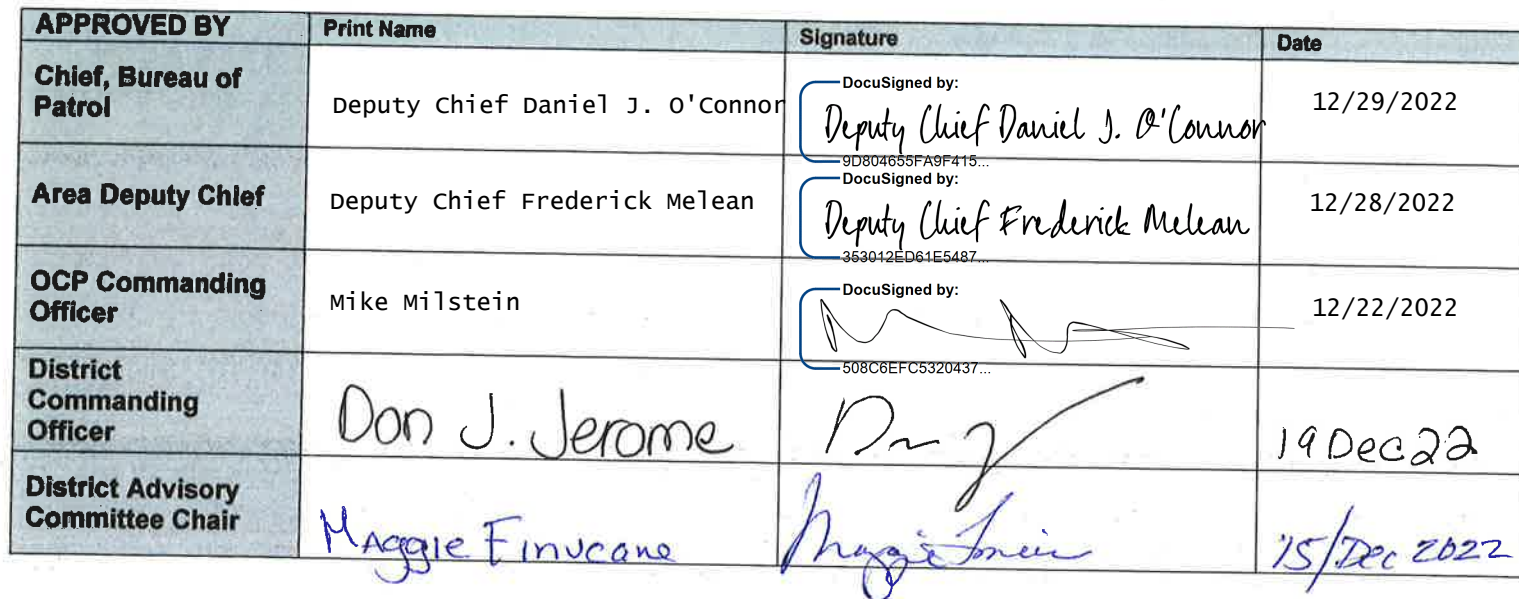 APPROVED BY Print Name Signature Date
Chief, Bureau of
Patrol
Deputy Chief Daniel J. O'Connor
DocuSigned by:
Deputy Chief Daniel J. O'Connor
9D804655FA9F415...
12/29/2022
Area Deputy Chief
Deputy Chief Frederick Melean
DocuSigned by:
Deputy Chief Frederick Melean
353012ED61E5487...
12/28/2022
OCP Commanding
Officer
Mike Milstein
DocuSigned by:
508C6EFC5320437...
12/22/2022
District
Commanding
Officer
Don J. Jerome
19 Dec 22
District Advisory
Committee Chair
Maggie Finucane
Maggie
15/Dec 2022